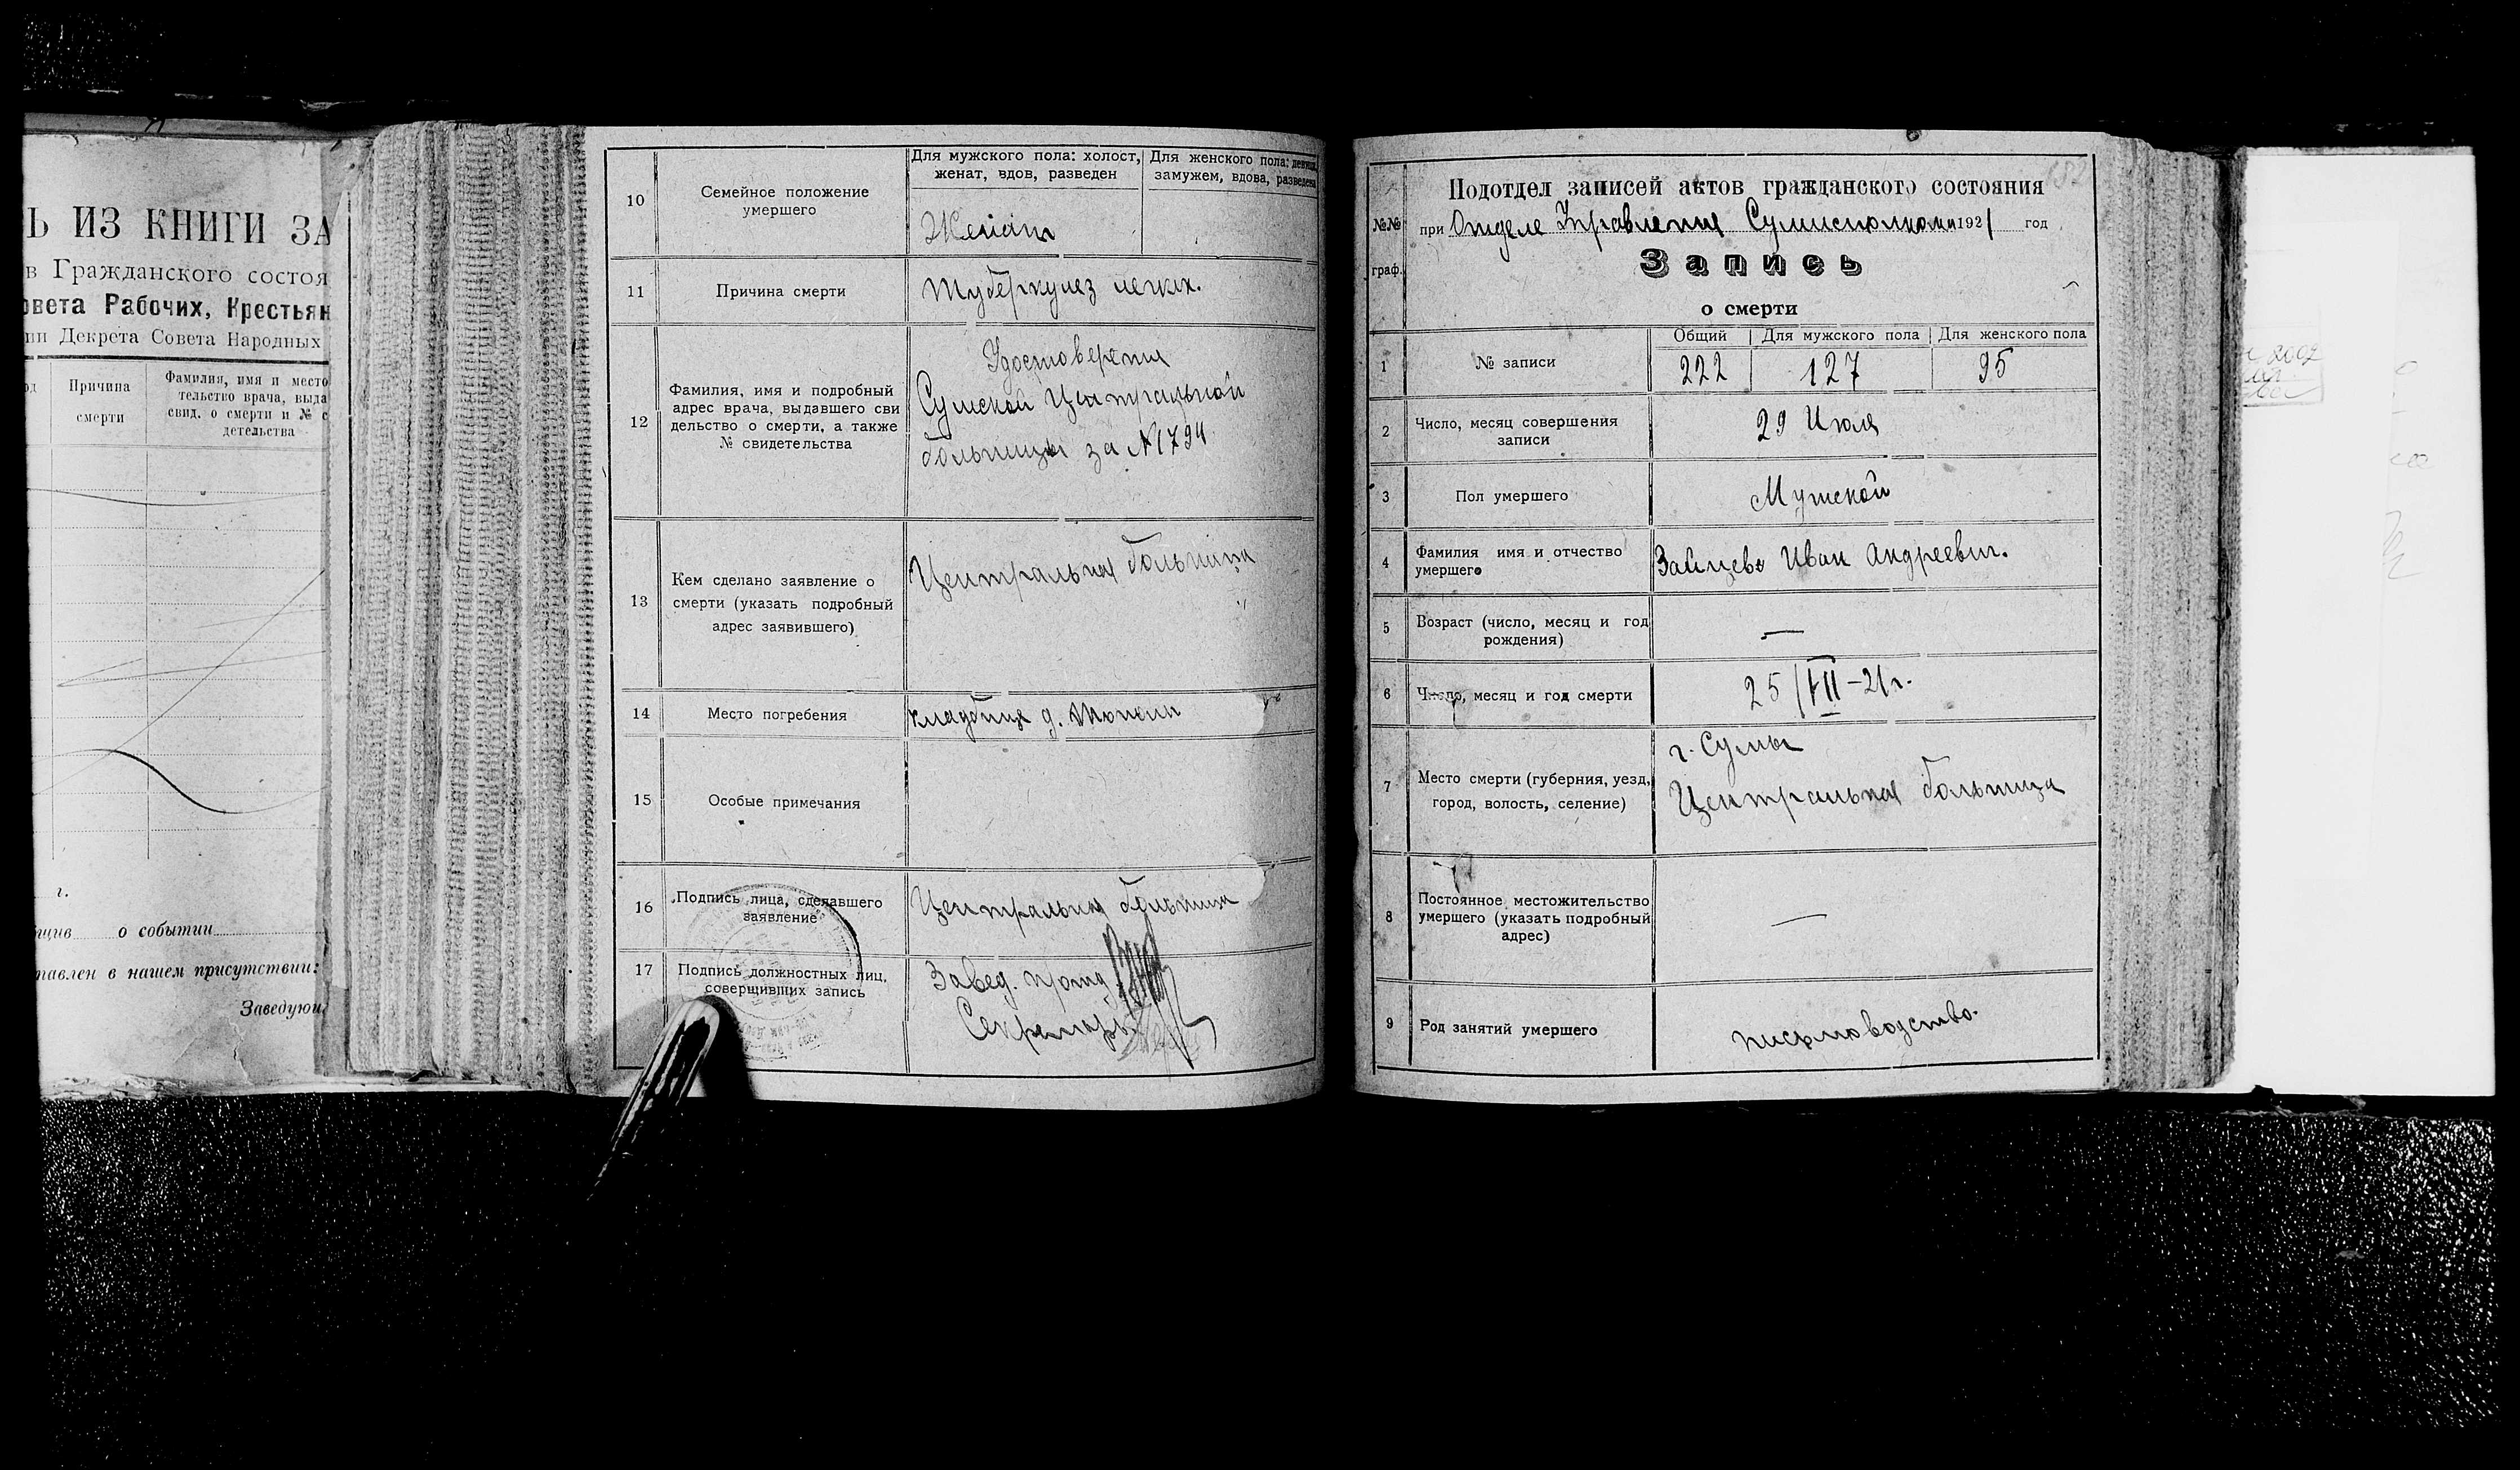 Ь ИЗ КНИГИ ЗА
в Гражданского состоя
овета Рабочих, Крестьян
ии Декрета Совета Народных
Причина
смерти
Фамилия, имя и место
тельство врача, выда
свид. о смерти и № с
детельства
г.
о событии
тавлен в нашем присутствии:
Заведую
10
Семейное положение
умершего
Для мужского пола: холост,
женат, вдов, разведен
Для женского пола: девица,
замужем, вдова, разведена
Женат
11
Причина смерти
туберкулез легких.
12
Фамилия, имя и подробный
адрес врача, выдавшего сви
дельство о смерти, а также
№ свидетельства
Удостоверения
Сумской Центральной
больницы за №1794
13
Кем сделано заявление о
смерти (указать подробный
адрес заявившего)
Центральная больница
14
Место погребения
кладбище д.
15
Особые примечания
16
Подпись лица, сделавшего
заявление
Центральная больница
17
Подпись должностных лиц,
соверщивших запись
Завед.
Секретарь
№№
граф.
Подотдел записей актов гражданского состояния
при Отделе Управления Сумисполкома 1921 год
Запись
о смерти
1
№ записи
Общий
Для мужского пола
Для женского пола
222
127
95
2
Число, месяц совершения
записи
29 Июля
3
Пол умершего
Мужской
4
Фамилия имя и отчество
умершего
Зайцев Иван Андреевич.
5
Возраст (число, месяц и год
рождения)
—
6
Число, месяц и год смерти
25/VII-21г.
7
Место смерти (губерния, уезд,
город, волость, селение)
г. Сумы
Центральная больница
8
Постоянное местожительство
умершего (указать подробный
адрес)
—
9
Род занятий умершего
письмоводство.